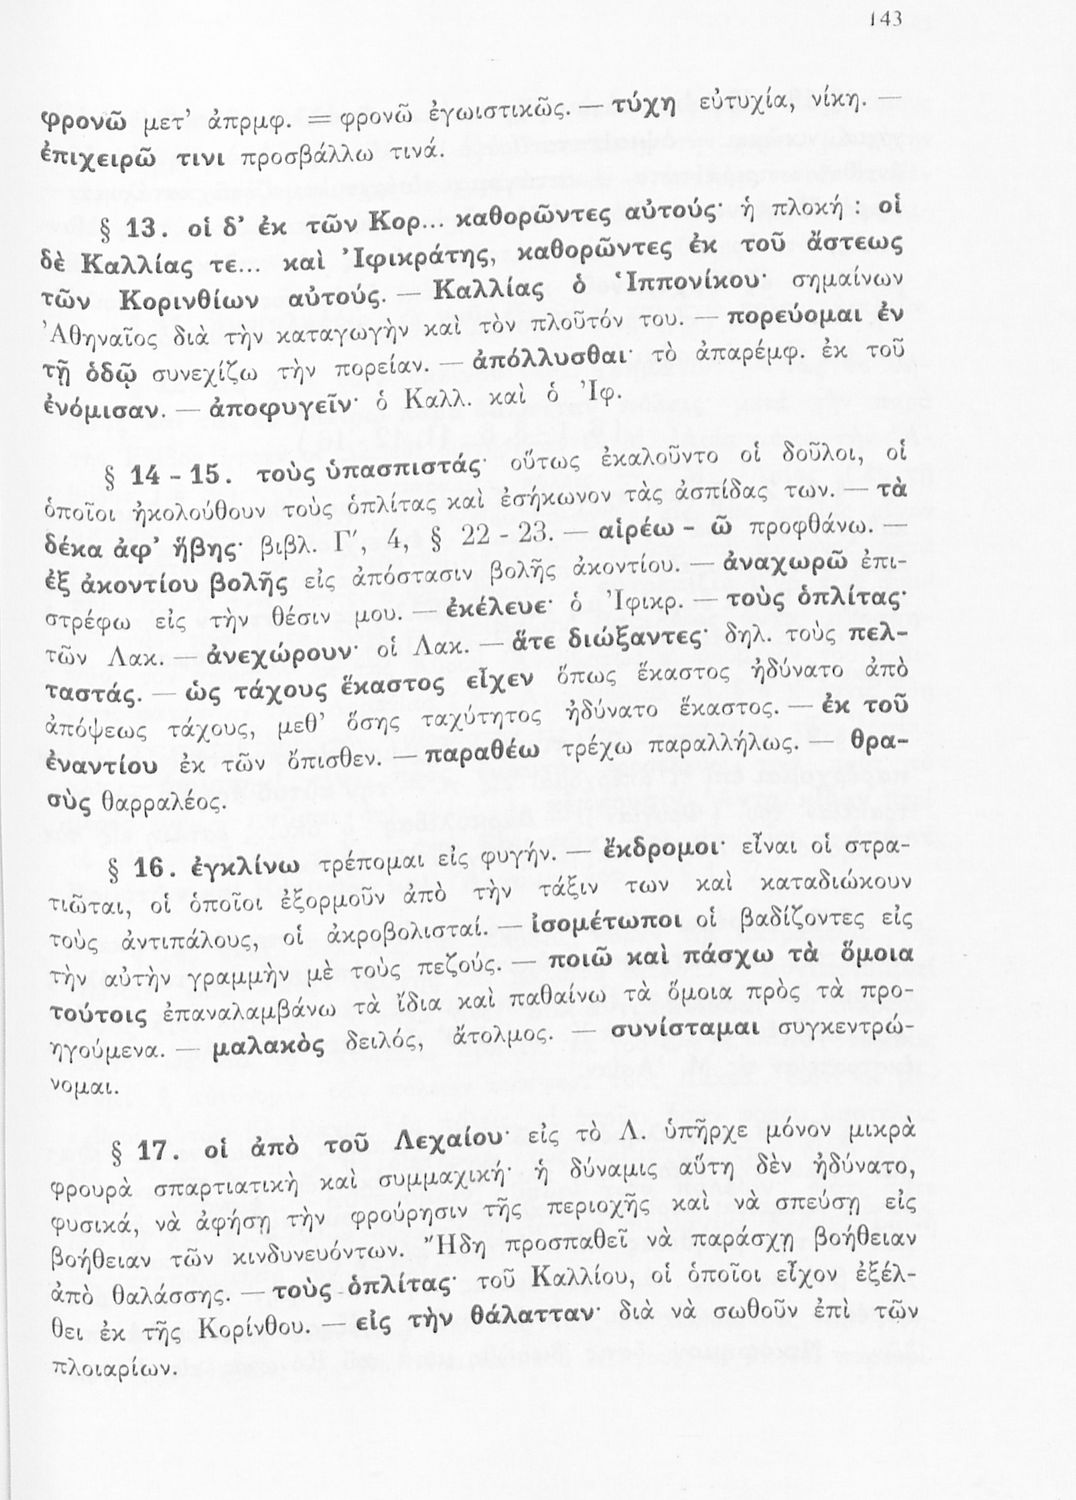 143
φρονῶ μετ’ ἀπρμφ. = φρονῶ ἐγωιστικῶς. — τύχη εὐτυχία, νίκη. —
ἐπιχειρῶ τινι προσβάλλω τινά.
§ 13. οἱ δ’ ἐκ τῶν Κορ... καθορῶντες αὐτούς· ἡ πλοκή : οἱ
δὲ Καλλίας τε... καὶ Ἰφικράτης, καθορῶντες ἐκ τοῦ ἄστεως
τῶν Κορινθίων αὐτούς. — Καλλίας ὁ Ἱππονίκου· σημαίνων
Ἀθηναῖος διὰ τὴν καταγωγὴν καὶ τὸν πλοῦτόν του. — πορεύομαι ἐν
τῇ ὁδῷ συνεχίζω τὴν πορείαν. — ἀπόλλυσθαι· τὸ ἀπαρέμφ. ἐκ τοῦ
ἐνόμισαν. — ἀποφυγεῖν· ὁ Καλλ. καὶ ὁ Ἰφ.
§ 14 - 15. τοὺς ὑπασπιστάς· οὕτως ἐκαλοῦντο οἱ δοῦλοι, οἱ
ὁποῖοι ἠκολούθουν τοὺς ὁπλίτας καὶ ἐσήκωνον τὰς ἀσπίδας των. — τὰ
δέκα ἀφ’ ἥβης· βιβλ. Γ′, 4, § 22 - 23. — αἱρέω - ῶ προφθάνω. —
ἐξ ἀκοντίου βολῆς εἰς ἀπόστασιν βολῆς ἀκοντίου. — ἀναχωρῶ ἐπι-
στρέφω εἰς τὴν θέσιν μου. — ἐκέλευε· ὁ Ἰφικρ. — τοὺς ὁπλίτας·
τῶν Λακ. — ἀνεχώρουν· οἱ Λακ. — ἅτε διώξαντες· δηλ. τοὺς πελ-
ταστάς. — ὡς τάχους ἕκαστος εἶχεν ὅπως ἕκαστος ἠδύνατο ἀπὸ
ἀπόψεως τάχους, μεθ’ ὅσης ταχύτητος ἠδύνατο ἕκαστος. — ἐκ τοῦ
ἐναντίου ἐκ τῶν ὄπισθεν. — παραθέω τρέχω παραλλήλως. — θρα-
σὺς θαρραλέος.
§ 16. ἐγκλίνω τρέπομαι εἰς φυγήν. — ἔκδρομοι· εἶναι οἱ στρα-
τιῶται, οἱ ὁποῖοι ἐξορμοῦν ἀπὸ τὴν τάξιν των καὶ καταδιώκουν
τοὺς ἀντιπάλους, οἱ ἀκροβολισταί. — ἰσομέτωποι οἱ βαδίζοντες εἰς
τὴν αὐτὴν γραμμὴν μὲ τοὺς πεζούς. — ποιῶ καὶ πάσχω τὰ ὅμοια
τούτοις ἐπαναλαμβάνω τὰ ἴδια καὶ παθαίνω τὰ ὅμοια πρὸς τὰ προ-
ηγούμενα. — μαλακὸς δειλός, ἄτολμος. — συνίσταμαι συγκεντρώ-
νομαι.
§ 17. οἱ ἀπὸ τοῦ Λεχαίου· εἰς τὸ Λ. ὑπῆρχε μόνον μικρὰ
φρουρὰ σπαρτιατικὴ καὶ συμμαχική· ἡ δύναμις αὕτη δὲν ἠδύνατο,
φυσικά, νὰ ἀφήσῃ τὴν φρούρησιν τῆς περιοχῆς καὶ νὰ σπεύσῃ εἰς
βοήθειαν τῶν κινδυνευόντων. Ἤδη προσπαθεῖ νὰ παράσχῃ βοήθειαν
ἀπὸ θαλάσσης. — τοὺς ὁπλίτας· τοῦ Καλλίου, οἱ ὁποῖοι εἶχον ἐξέλ-
θει ἐκ τῆς Κορίνθου. — εἰς τὴν θάλατταν· διὰ νὰ σωθοῦν ἐπὶ τῶν
πλοιαρίων.